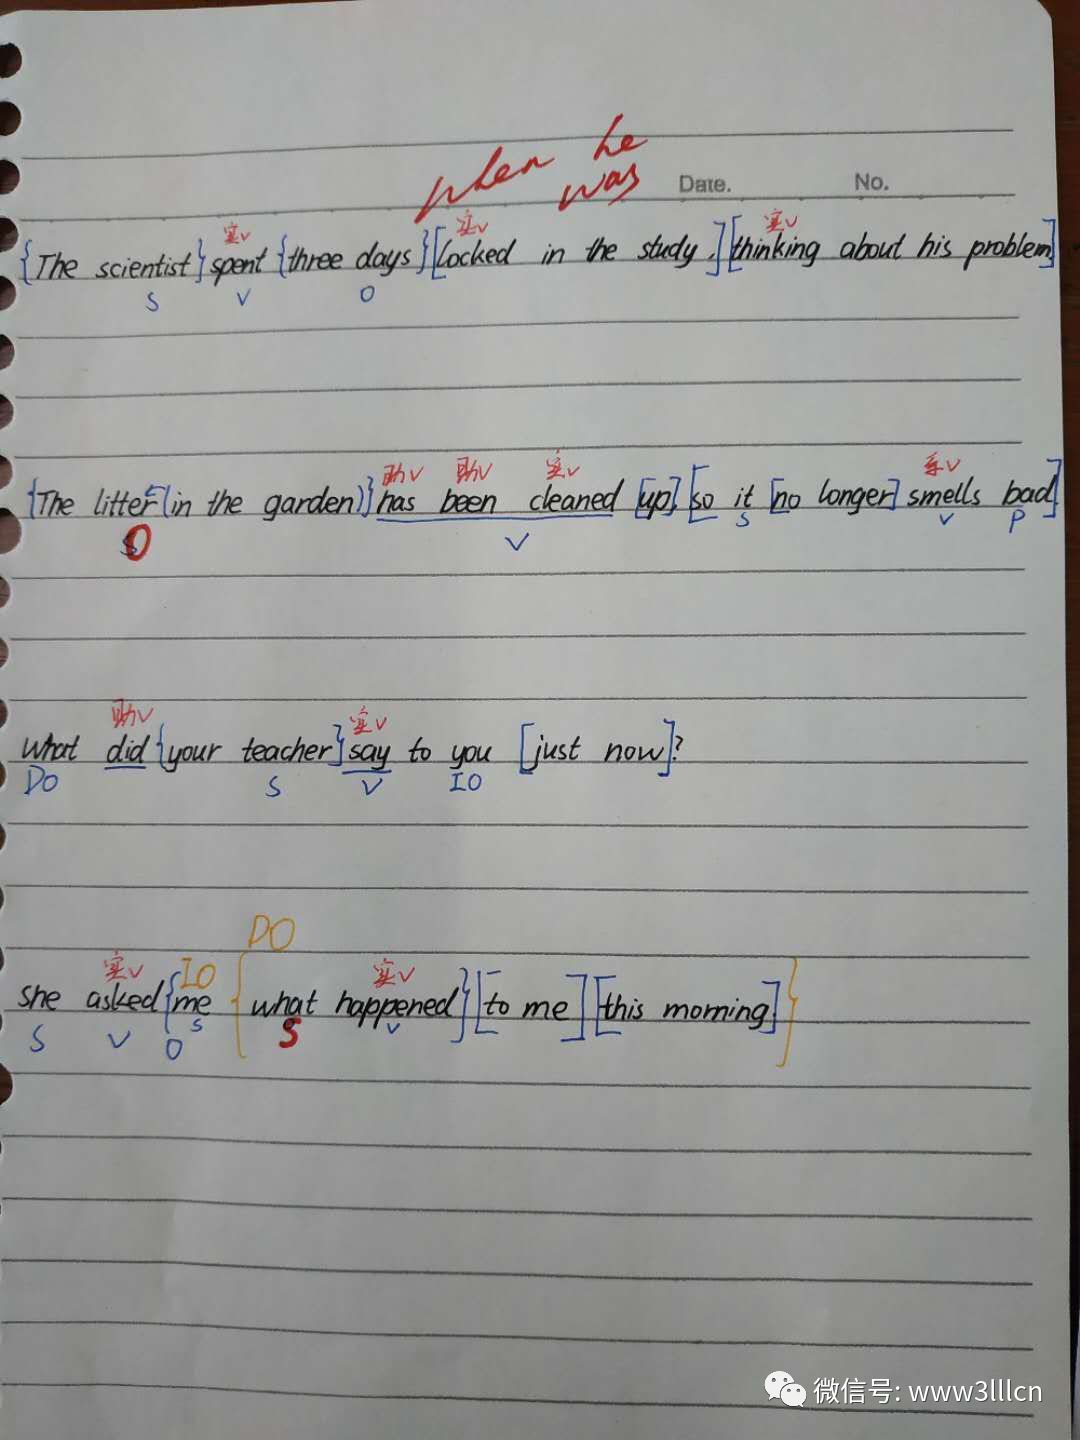 when he
was
Date. No.
实v 实v 实v
{The scientist} spent {three days} [locked in the study.] [thinking about his problem]
S V O
助v 助v 实v 系v
{The litter (in the garden)} has been cleaned [up], [so it [no longer] smells bad]
O V S V P
助v 实v
what did {your teacher} say to you [just now]?
DO S V IO
DO
实v IO 实v
she asked {me {what happened} [to me] [this morning]}
S V O S S V
微信号: www3lllcn